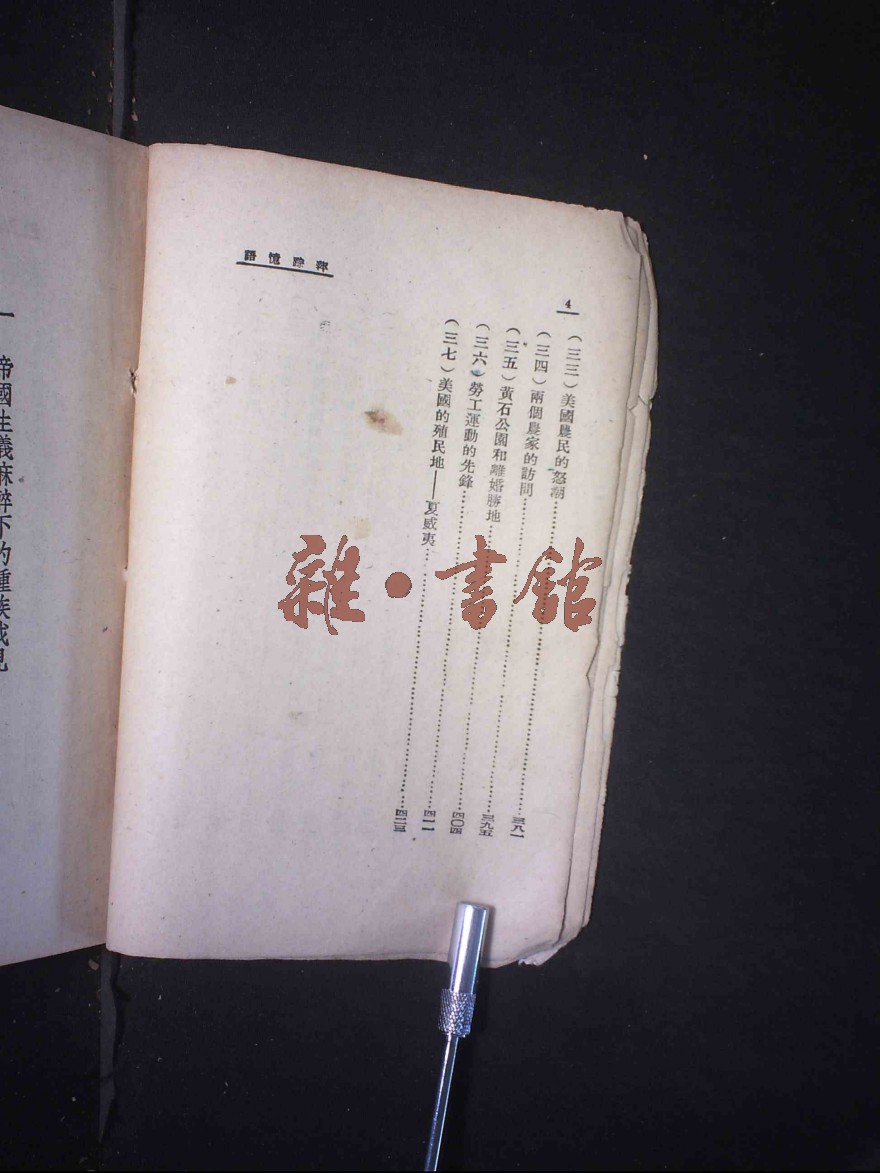 4
（三三）美國農民的怒潮……三八一
（三四）兩個農家的訪問……三九五
（三五）黃石公園和離婚勝地……四〇四
（三六）勞工運動的先鋒……四一一
（三七）美國的殖民地——夏威夷……四二三
萍踪憶語
一 帝國主義麻醉下的種族成見
雜·書館